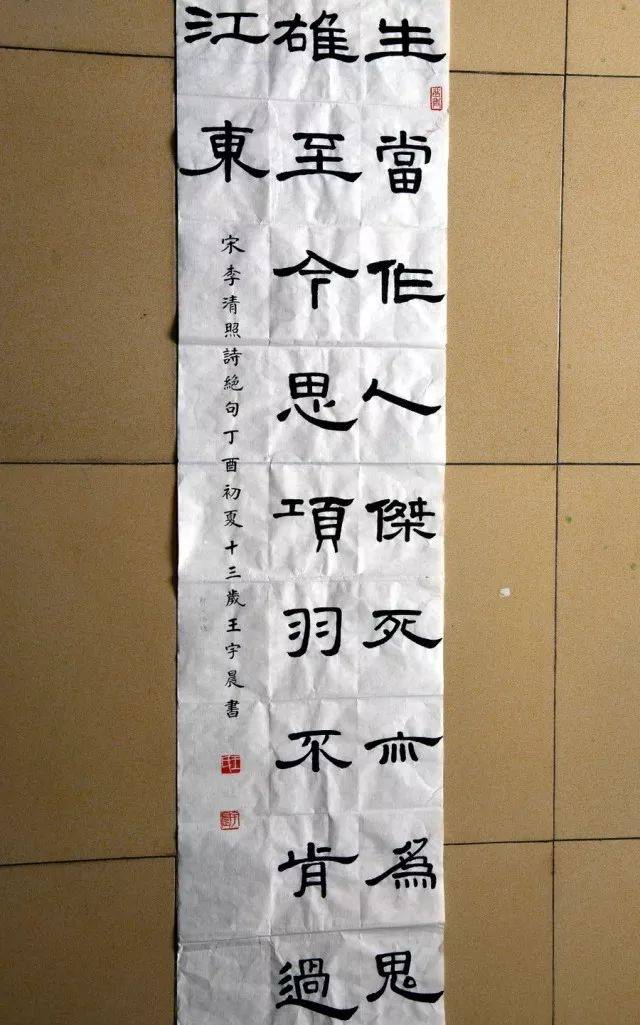 生當作人傑死亦為鬼
雄至今思項羽不肯過
江東
宋李清照詩絕句丁酉初夏十三歲王宇晨書